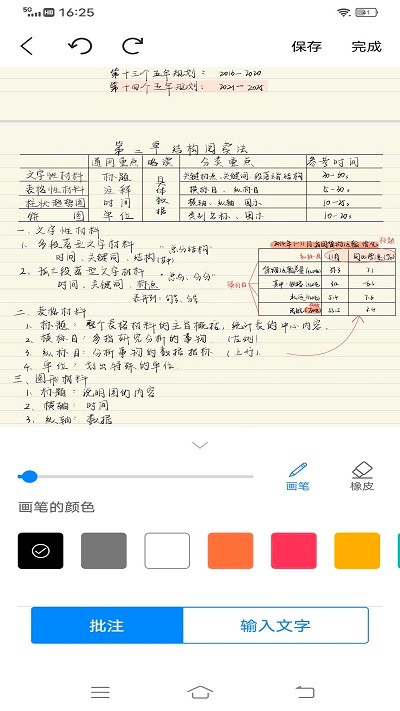 5G HD 16:25 61
保存 完成
第十三个五年规划： 2016-2020
第十四个五年规划： 2021-2025
第二章 结构阅读法
通用重点 略读 分类重点 参考时间
文字性材料 标题 具体数据 关键词点、关键词、段落主旨结构 30-60s
表格性材料 注释 横标目、纵标目 5-30s
柱状趋势图 时间 横轴、纵轴、图示 10-25s
饼 图 单位 类别名称、图示 10-20s
一、文字性材料
1. 多段落型文字材料 "总分结构"
时间、关键词、结构
2. 孤立段落型文字材料 "总分、分分"
时间、关键词、标点
二、表格材料
1. 标题：整个表格材料的主旨概括，统计表的中心内容.
2. 横标目：多指研究分析的事物 (左侧)
3. 纵标目：分析事物的数据指标 (上行)
4. 单位：划出特殊的单位
标题
纵标目
横标目
11月
三、图形材料
1. 标题：说明图的内容
2. 横轴：时间
3. 纵轴：数据
画笔
橡皮
画笔的颜色
批注 输入文字